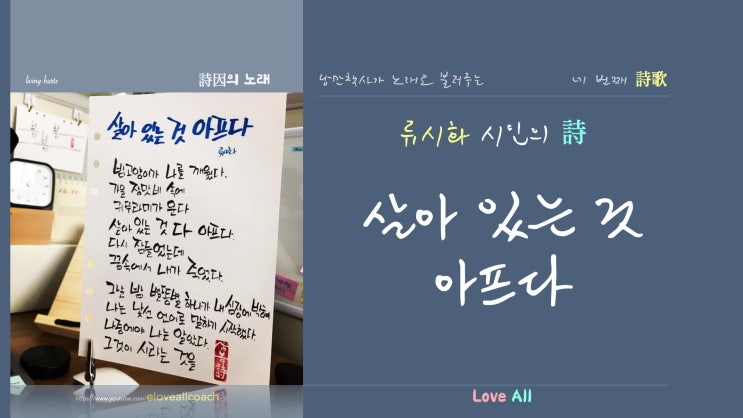 living-hurts
詩因의 노래
살아 있는 것 아프다
류시화
밤고양이가 나를 깨웠다.
가을 장맛비 속에
귀뚜라미가 운다
살아 있는 것 다 아프다.
다시 잠들었는데
꿈속에서 내가 죽었다.
그날 밤 별똥별 하나가 내 심장에 박혀
나는 낯선 언어로 말하기 시작했다.
나중에야 나는 알았다.
그것이 시라는 것을
https://www.youtube.com/@loveallcoach
낭만책사가 노래로 불러주는
네 번째 詩歌
류시화 시인의 詩
살아 있는 것
아프다
Love All